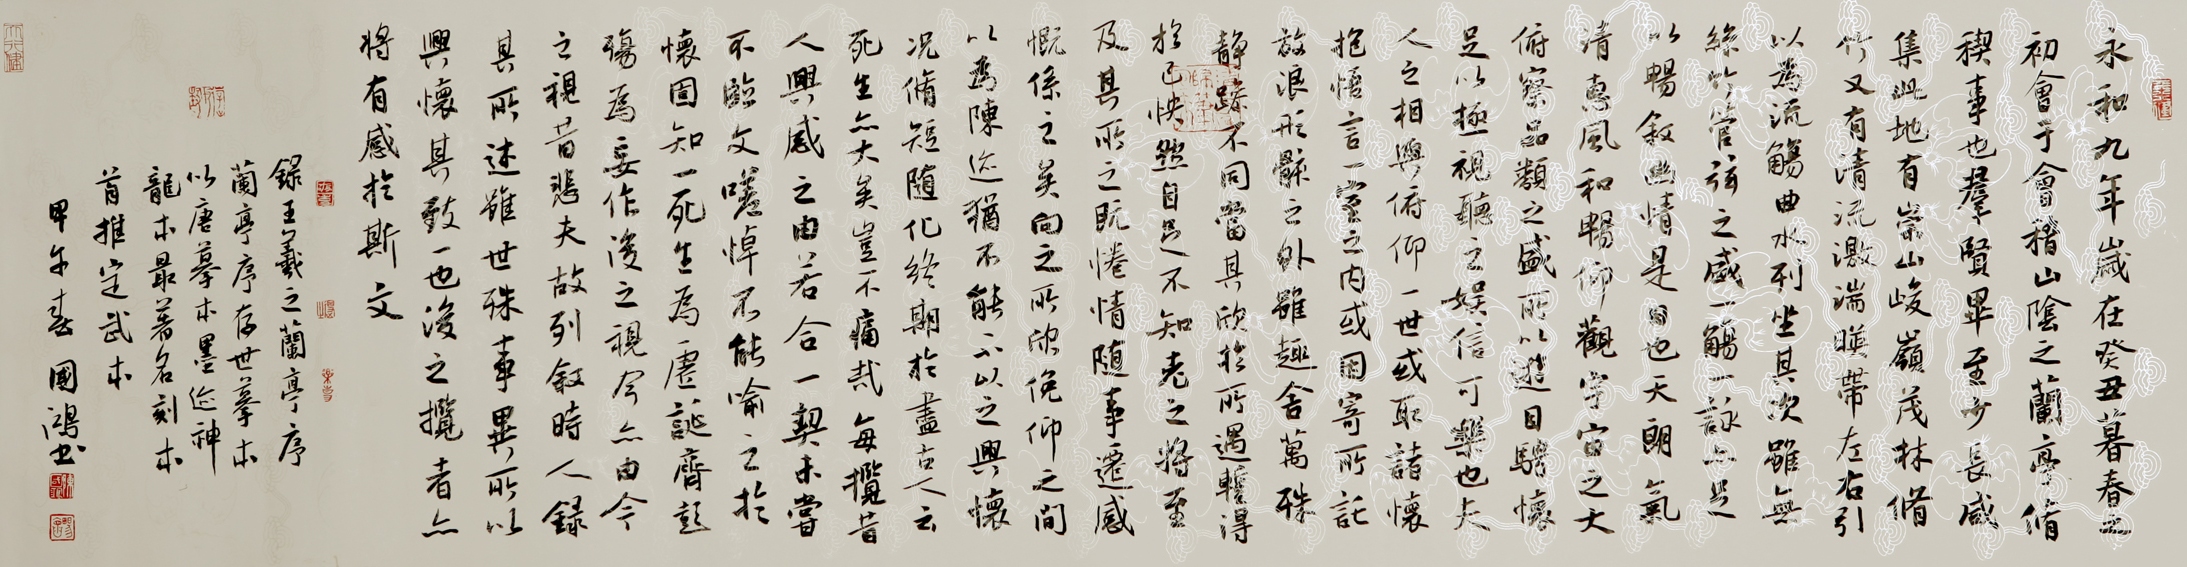 永和九年歲在癸丑暮春之
初會于會稽山陰之蘭亭脩
禊事也羣賢畢至少長咸
集此地有崇山峻嶺茂林脩
竹又有清流激湍暎帶左右引
以為流觴曲水列坐其次雖無
絲竹管弦之盛一觴一詠亦足
以暢敘幽情是日也天朗氣
清惠風和暢仰觀宇宙之大
俯察品類之盛所以遊目騁懷
足以極視聽之娛信可樂也夫
人之相與俯仰一世或取諸懷
抱悟言一室之內或因寄所託
放浪形骸之外雖趣舍萬殊
靜躁不同當其欣於所遇蹔得
於己怏然自足不知老之將至
及其所之既惓情隨事遷感
慨係之矣向之所欣俛仰之間
以為陳迹猶不能不以之興懷
況脩短隨化終期於盡古人云
死生亦大矣豈不痛哉每攬昔
人興感之由若合一契未嘗
不臨文嗟悼不能喻之於
懷固知一死生為虛誕齊彭
殤為妄作後之視今亦由今
之視昔悲夫故列敘時人錄
其所述雖世殊事異所以
興懷其致一也後之攬者亦
將有感於斯文
錄王羲之蘭亭序
蘭亭序存世摹本
以唐摹本墨迹神
龍本最著名刻本
首推定武本
甲午春 國鴻書